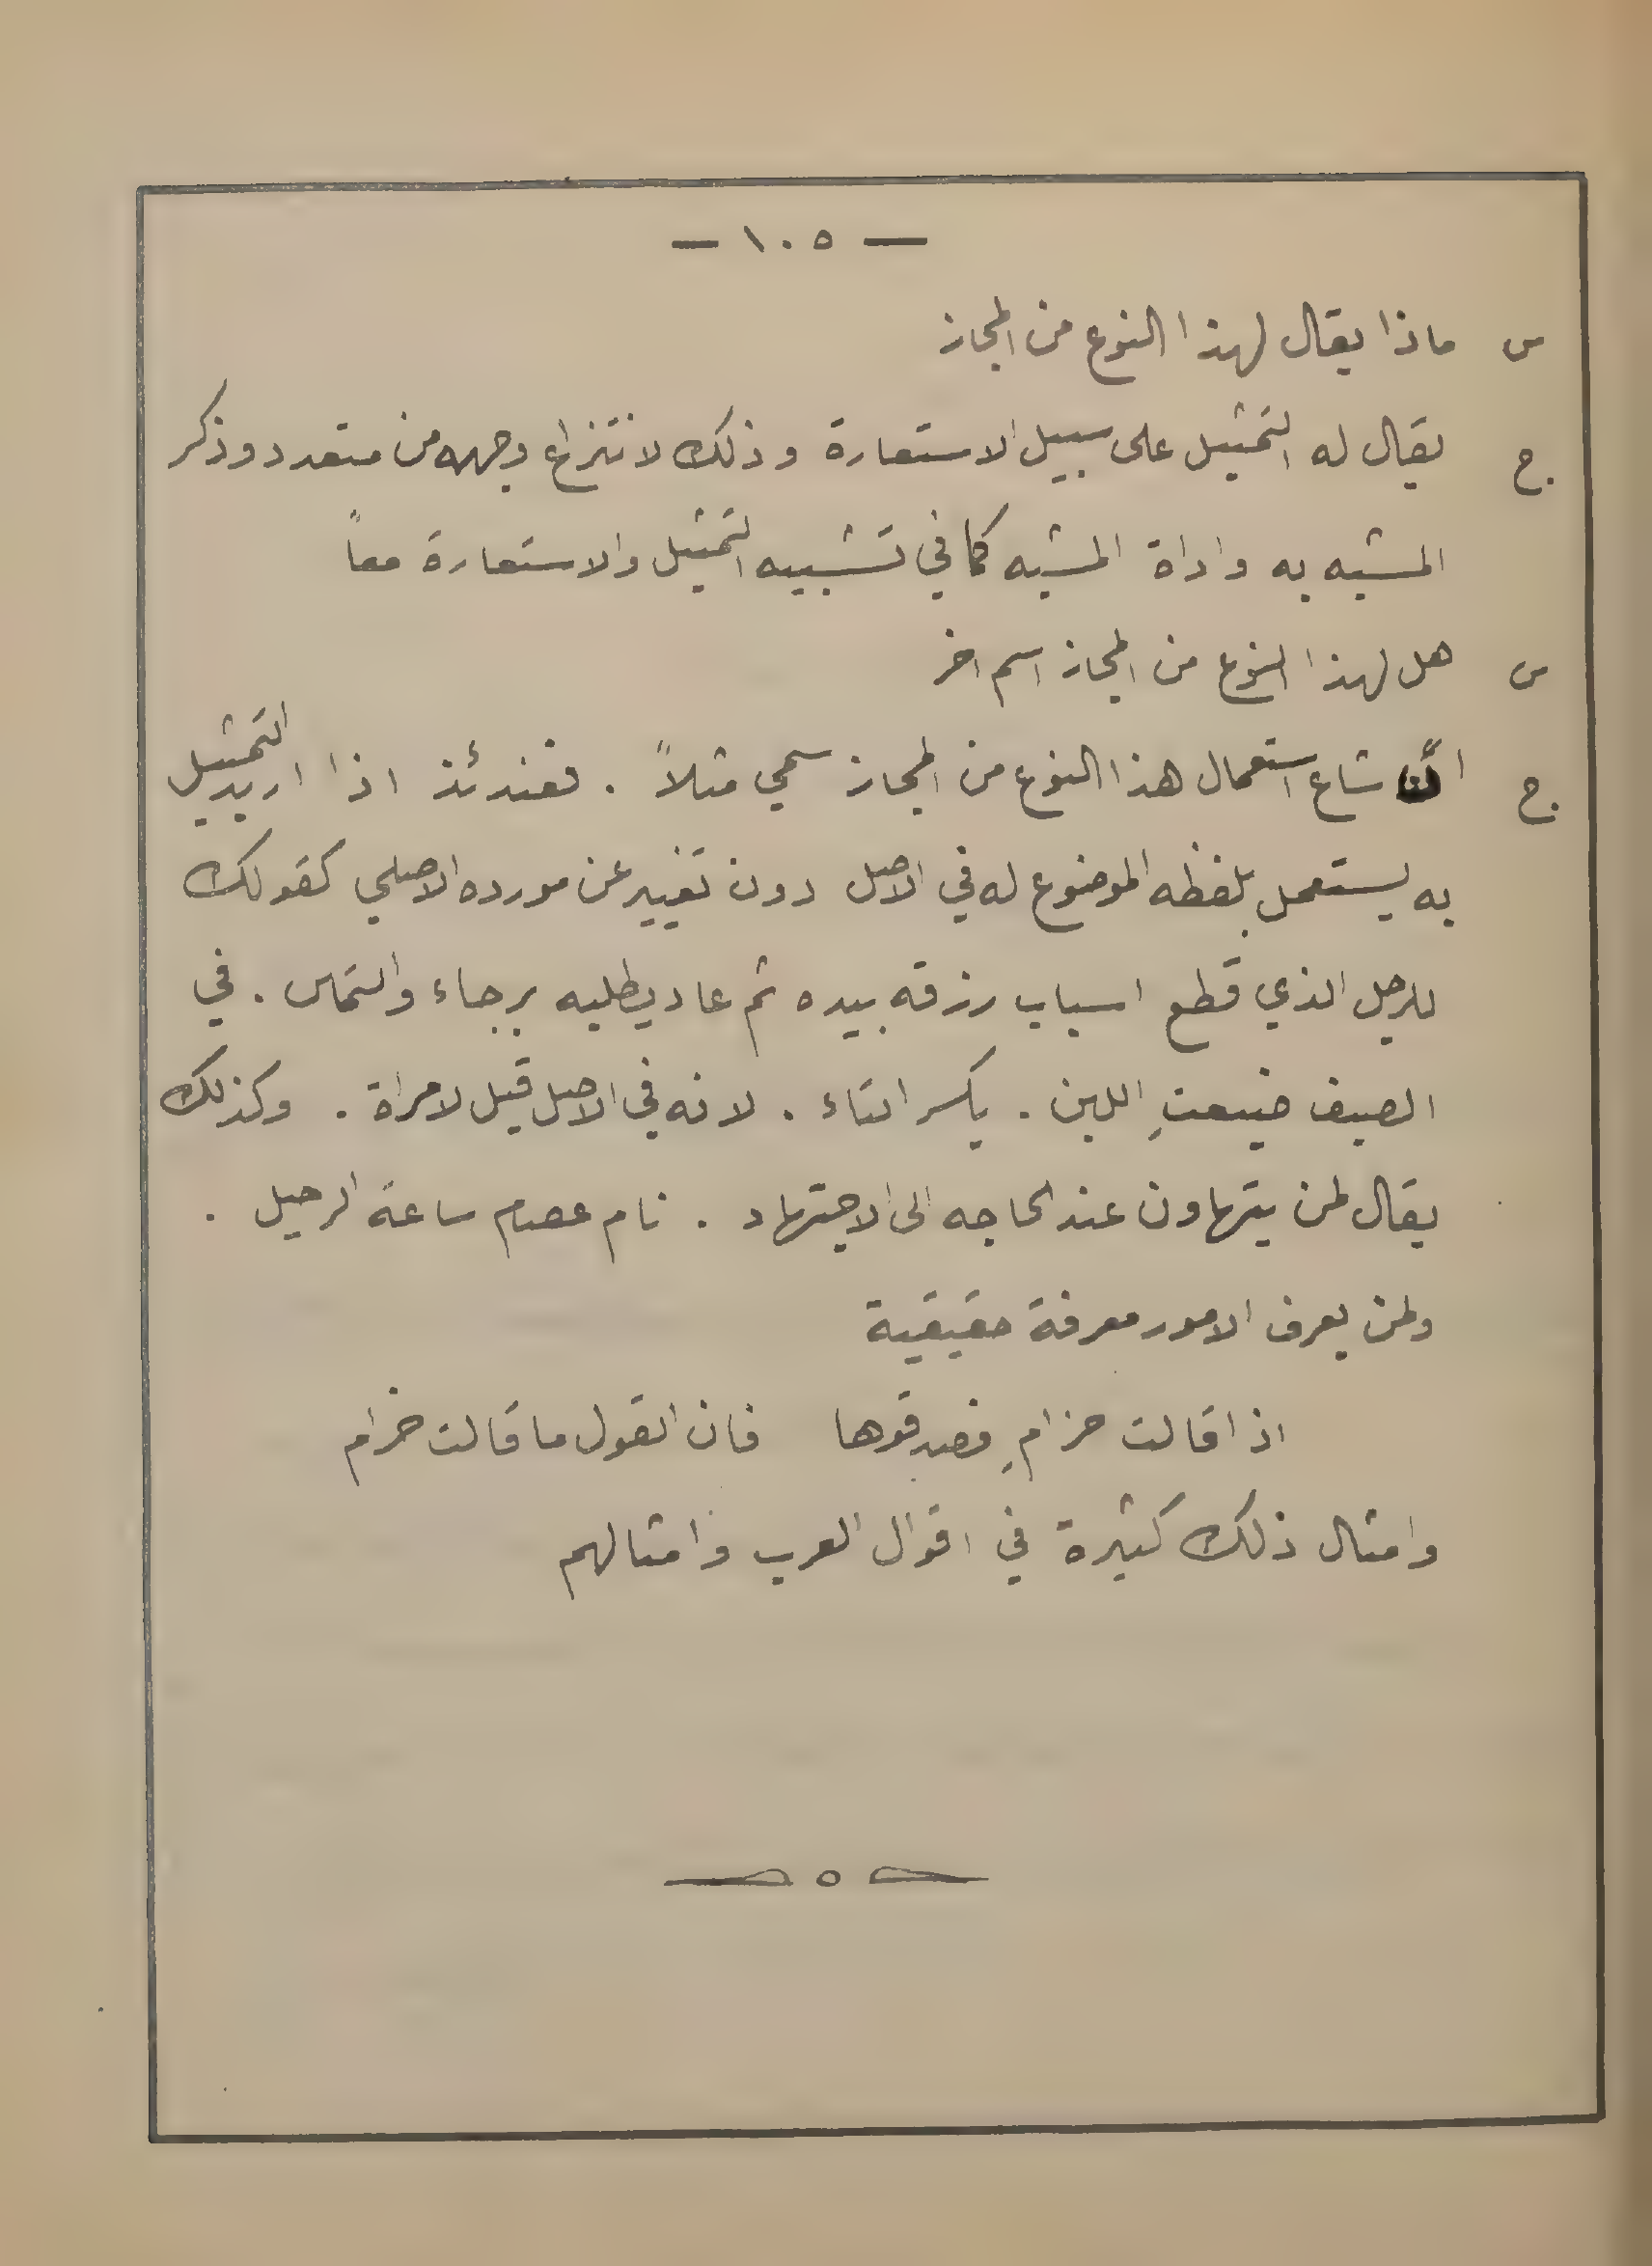 — ١٠٥ —
س ماذا يقال لهذا النوع من المجاز
ج. يقال له التمثيل على سبيل الاستعارة وذلك لانتزاع وجهه من متعدد وذكر
المشبه به واداة المشبه كما في تشبيه التمثيل والاستعارة معاً
س هل لهذا النوع من المجاز اسم اخر
ج. شاع استعمال هذا النوع من المجاز سمي مثلاً . فعندئذ اذا اريد التمثيل
به يستعمل بلفظه الموضوع له في الاصل دون تغيير عن مورده الاصلي كقولك
للرجل الذي قطع اسباب رزقه بيده ثم عاد يطلبه برجاء والتماس . في
الصيف ضيعتِ اللبن . بكسر التاء . لانه في الاصل قيل لامراة . وكذلك
يقال لمن يتهاون عند الحاجه الى الاجتهاد . نام عصام ساعة الرحيل .
ولمن يعرف الامور معرفة حقيقية
اذا قالت حزامِ فصدقوها فان القول ما قالت حزام
وامثال ذلك كثيرة في اقوال العرب وامثالهم